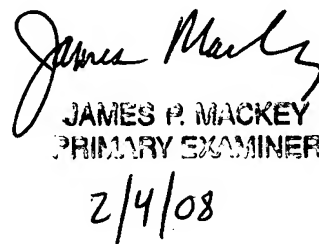 James Mackey
JAMES P. MACKEY
PRIMARY EXAMINER
2/4/08